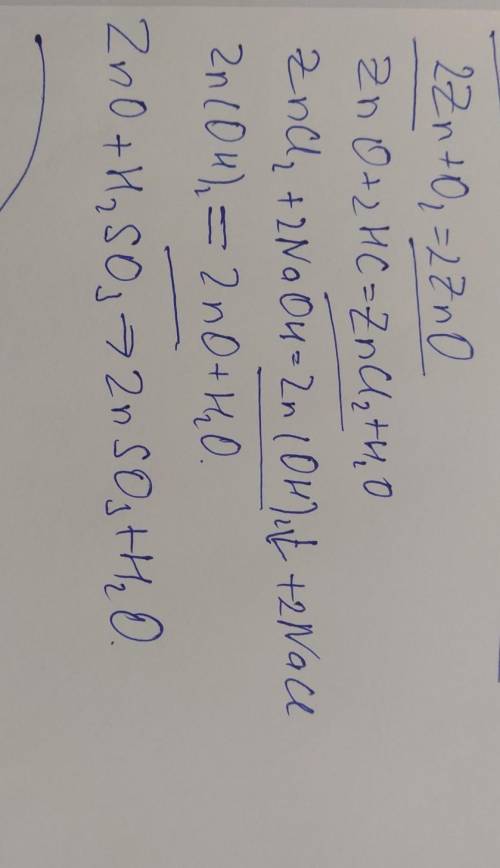 2Zn+O₂=2ZnO
ZnO+2HC=ZnCl₂+H₂O
ZnCl₂+2NaOH=Zn(OH)₂↓+2NaCl
Zn(OH)₂=ZnO+H₂O.
ZnO+H₂SO₃→ZnSO₃+H₂O.